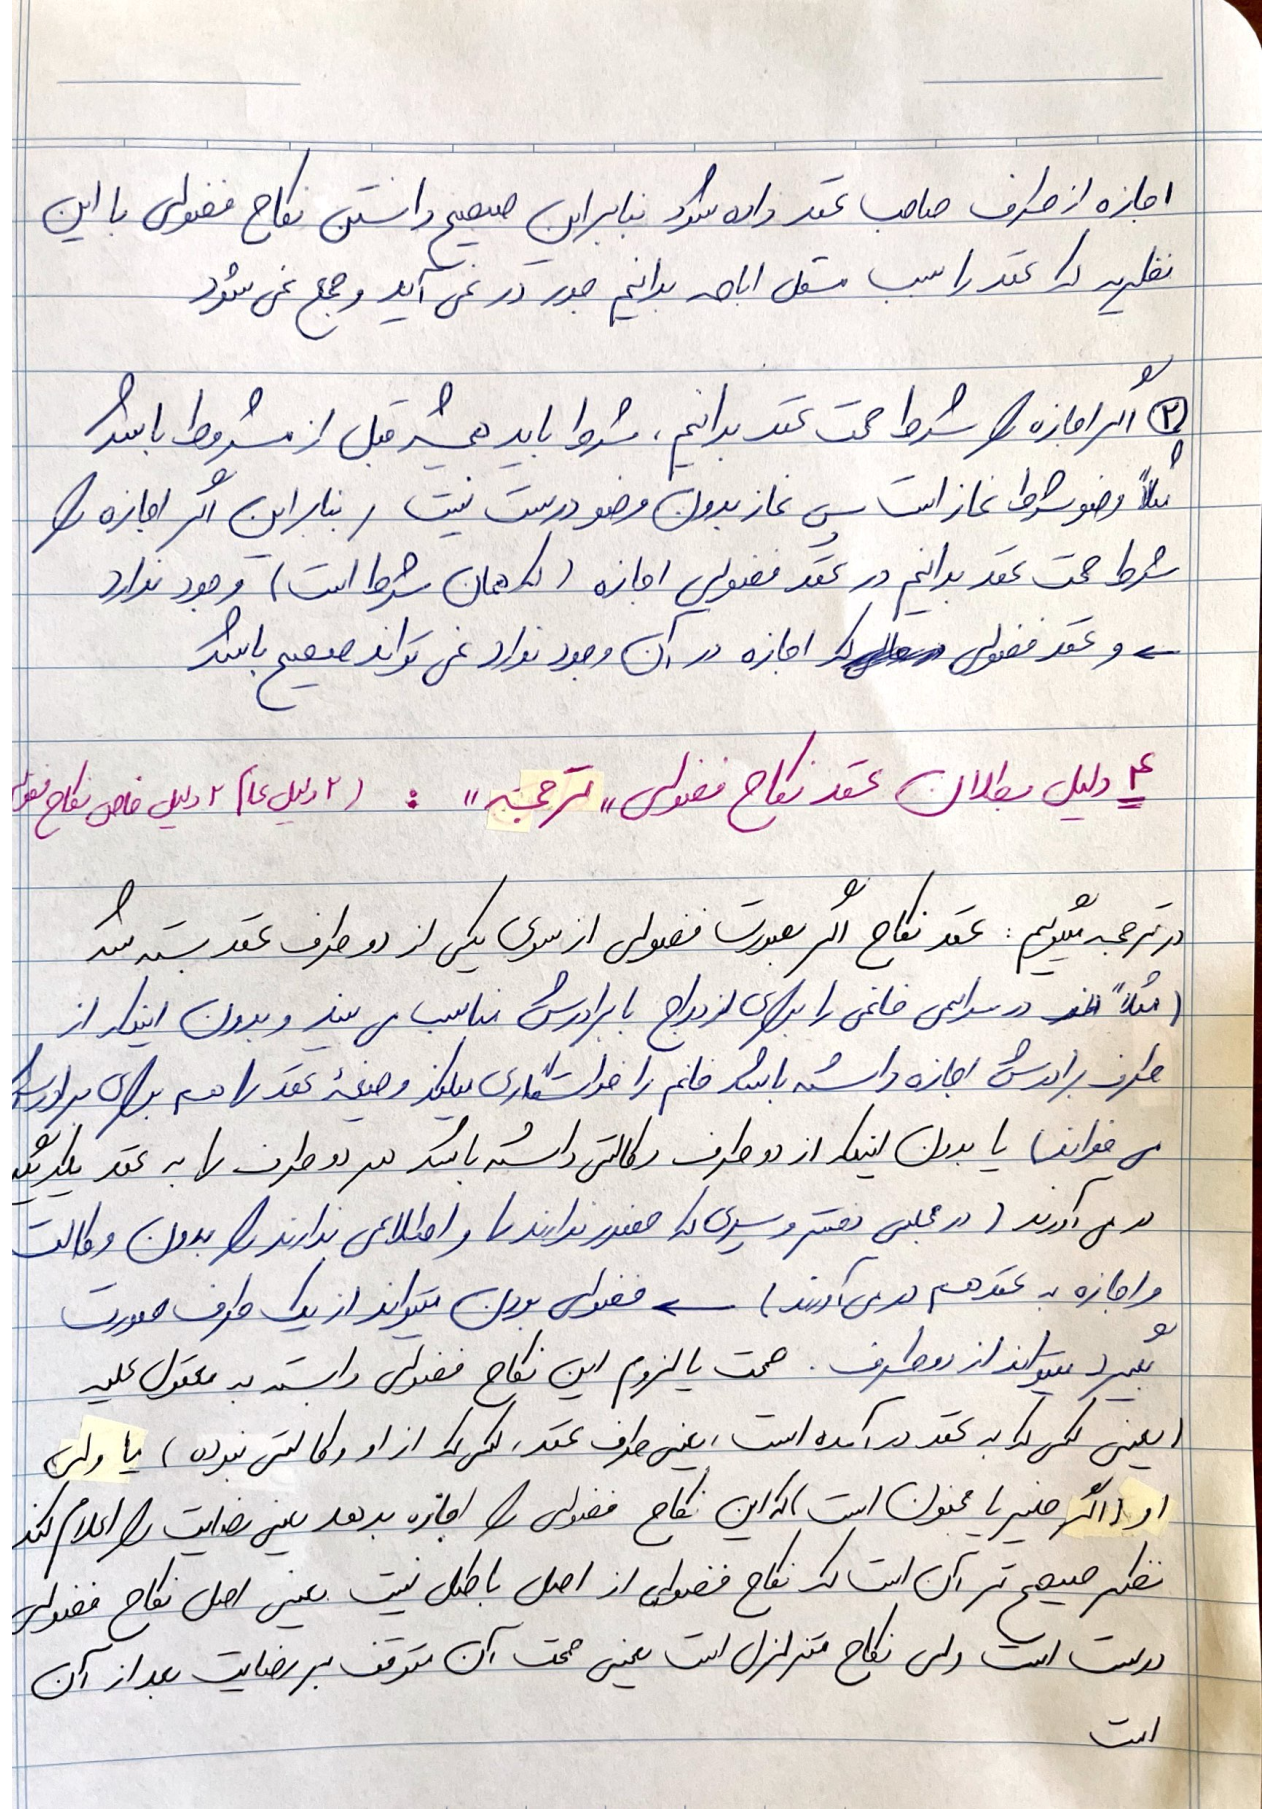 اجازه از طرف صاحب عقد داده شود بنابراین صحیح دانستن نکاح فضولی با این
نظریه که عقد را سبب مستقل اباحه بدانیم جور در نمی آید و جمع نمی شود
۲ اگر اجازه را شرط صحت عقد بدانیم، شرط باید همیشه قبل از مشروط باشد
مثلاً وضو شرط نماز است پس نماز بدون وضو درست نیست، بنابراین اگر اجازه را
شرط صحت عقد بدانیم در عقد فضولی اجازه (که همان شرط است) وجود ندارد
← و عقد فضولی که اجازه در آن وجود ندارد نمی تواند صحیح باشد
۴ دلیل بطلان عقد نکاح فضولی "ترجمه" : (۲ دلیل عام) ۲ دلیل خاص نکاح فضولی
در ترجمه میگوئیم : عقد نکاح اگر بصورت فضولی از سوی یکی از دو طرف عقد بسته شد
(مثلاً در مراسمی خانمی را برای ازدواج با برادرش مناسب می بیند و بدون اینکه از
طرف برادرش اجازه داشته باشد خانم را خواستگاری میکند و صیغهٔ عقد را هم برای برادرش
می خواند) یا بدون اینکه از دو طرف وکالتی داشته باشد هر دو طرف را به عقد یکدیگر
در می آورند (در مجلسی دختر و پسری که حضور ندارند و اطلاعی ندارند را بدون وکالت
و اجازه به عقد هم در می آورند) ← فضولی بودن میتواند از یک طرف صورت
بگیرد میتواند از دو طرف. صحت یا لزوم این نکاح فضولی وابسته به معقول علیه
(یعنی کسی که به عقد در آمده است، یعنی طرف عقد، کسی که از او وکالتی نبوده) یا ولی
او (اگر صغیر یا مجنون است) که این نکاح فضولی را اجازه بدهد یعنی رضایت را اعلام کند
نظر صحیح تر آن است که نکاح فضولی از اصل باطل نیست یعنی اصل نکاح فضولی
درست است ولی نکاح متزلزل است یعنی صحت آن متوقف بر رضایت بعد از آن
است